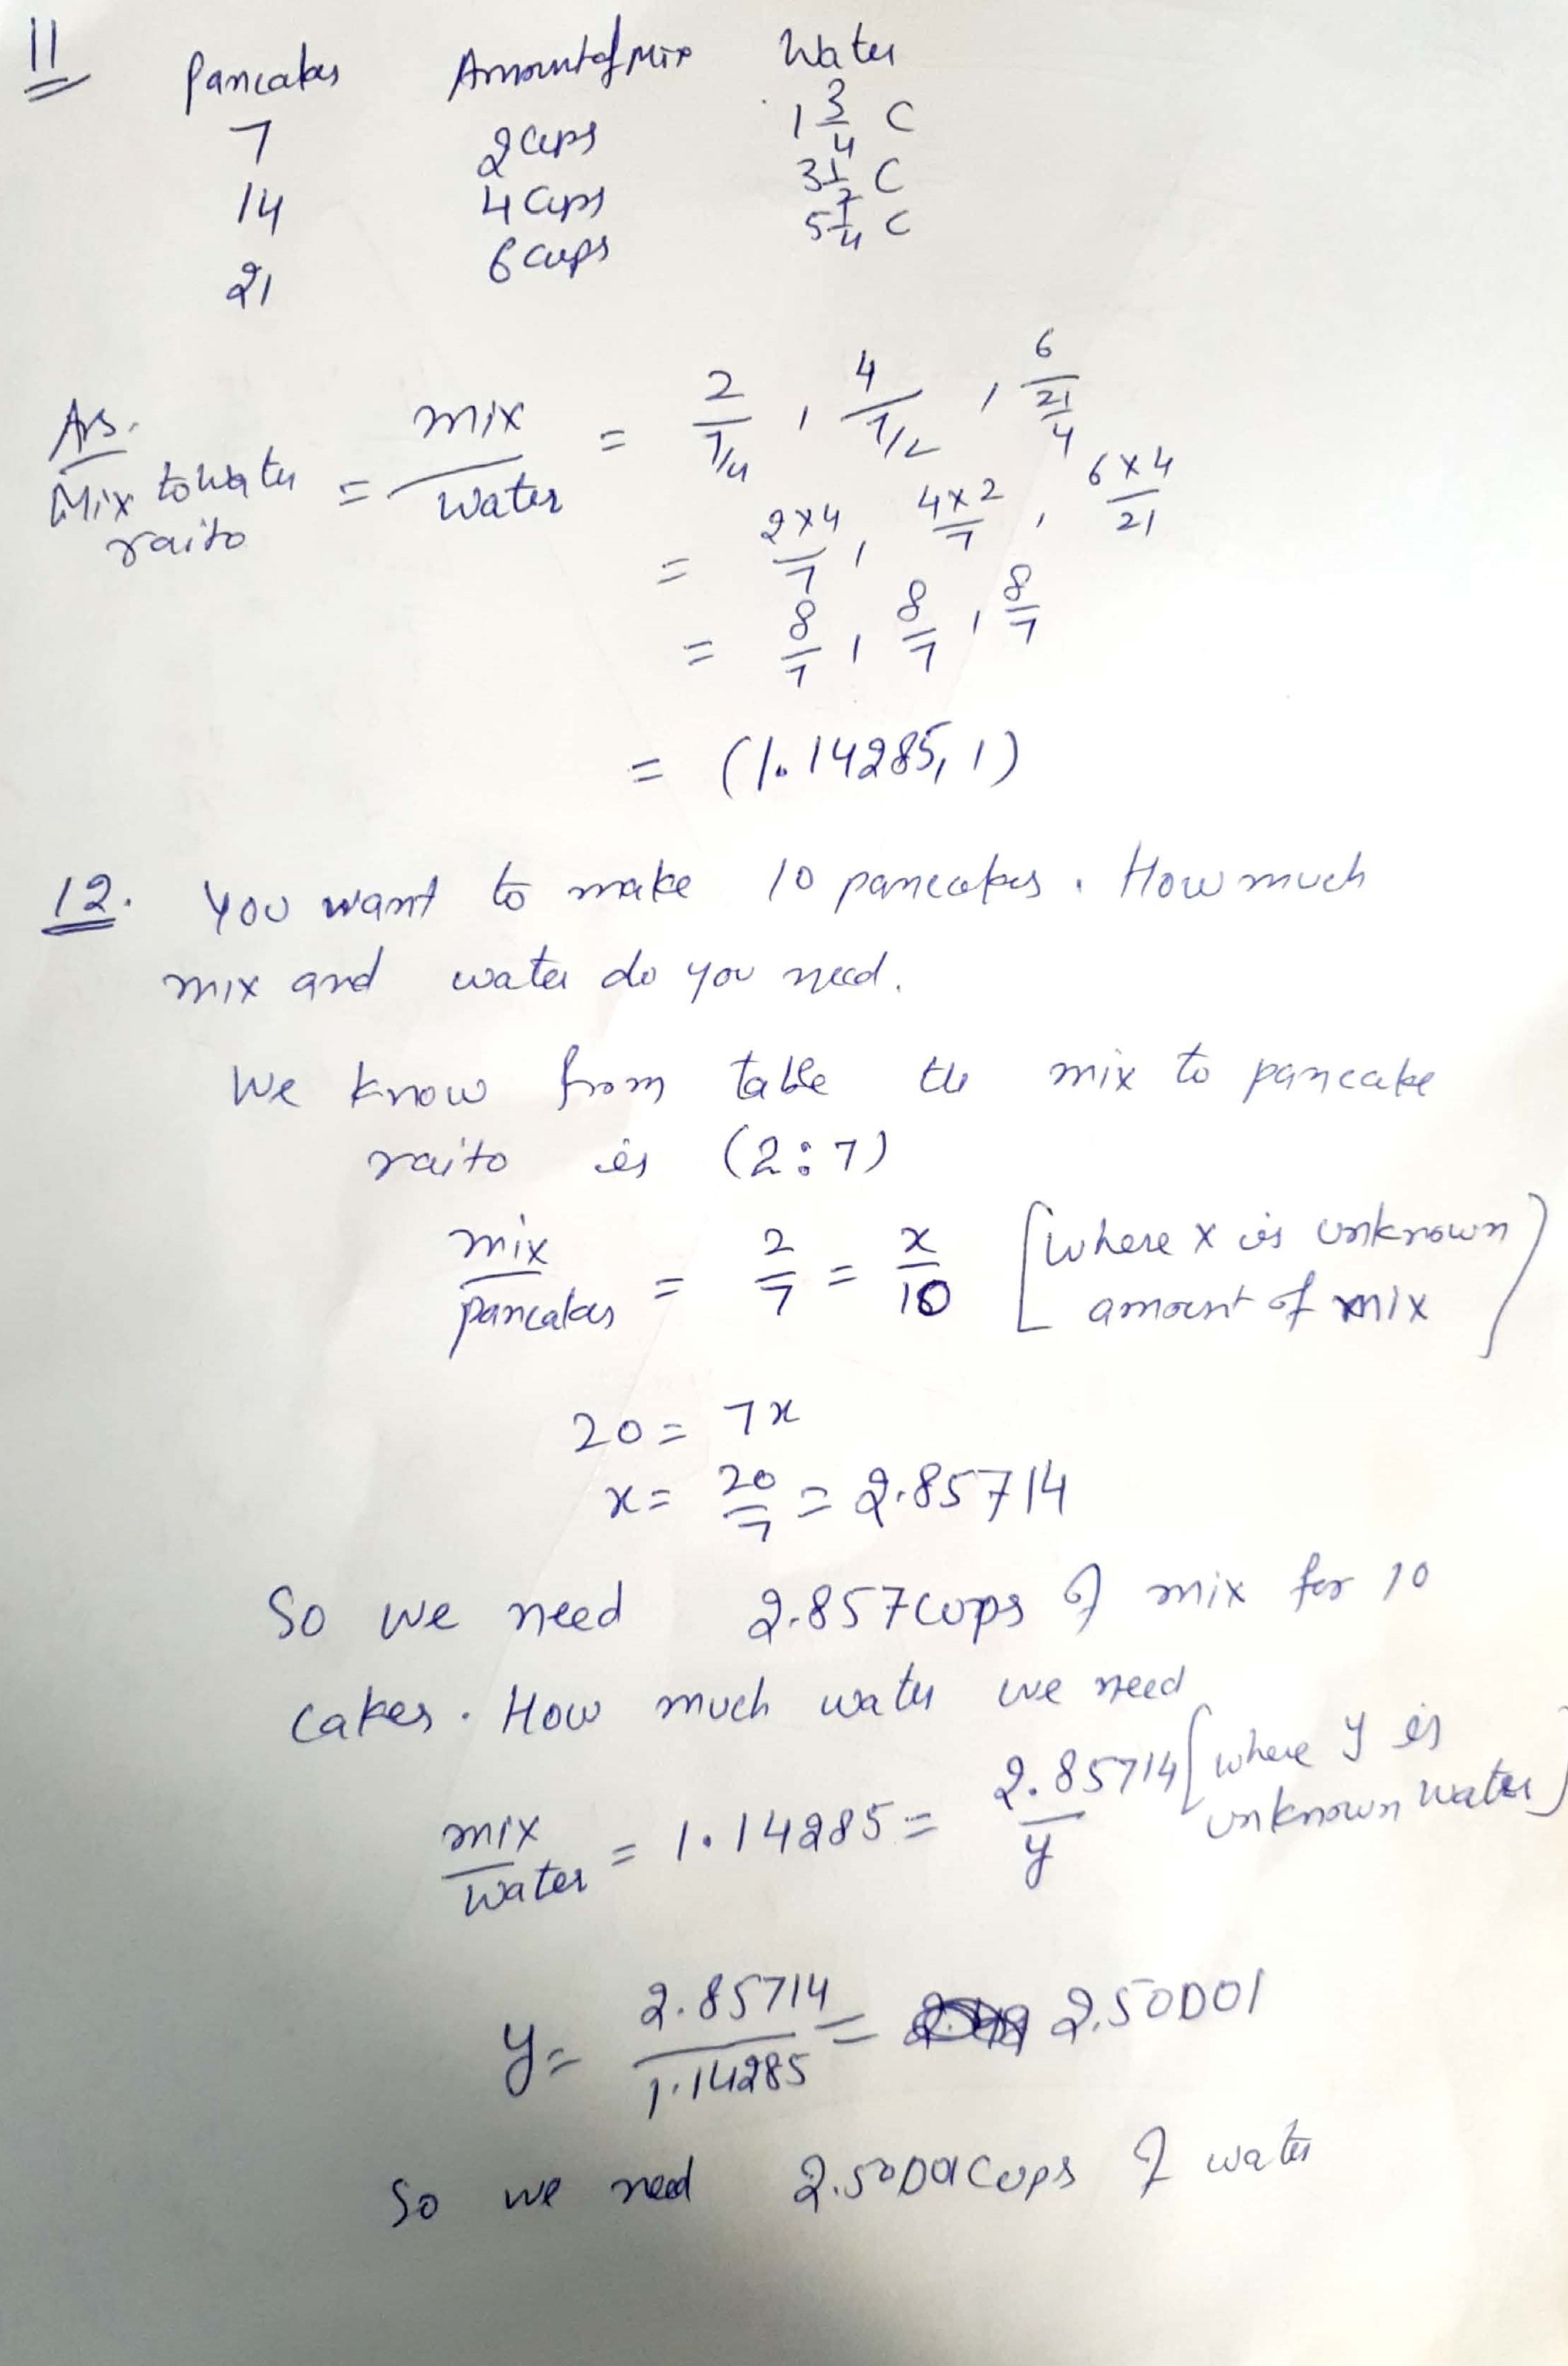 11 Pancakes Amount of Mix Water
7 2 cups 1 3/4 C
14 4 Cups 3 1/2 C
21 6 cups 5 1/4 C
Ans.
Mix to Water raito = mix/water = 2/7/4 , 4/7/2 , 6/21/4
= 2x4/7 , 4x2/7 , 6x4/21
= 8/7 , 8/7 , 8/7
= (1.14285, 1)
12. You want to make 10 pancakes. How much
mix and water do you need.
We know from table the mix to pancake
raito is (2:7)
mix/pancakes = 2/7 = x/10 [where x is unknown
amount of mix]
20 = 7x
x = 20/7 = 2.85714
So we need 2.857 cups of mix for 10
cakes. How much water we need
mix/water = 1.14285 = 2.85714/y [where y is
unknown water]
y = 2.85714/1.14285 = 2.50001
So we need 2.5000 cups of water